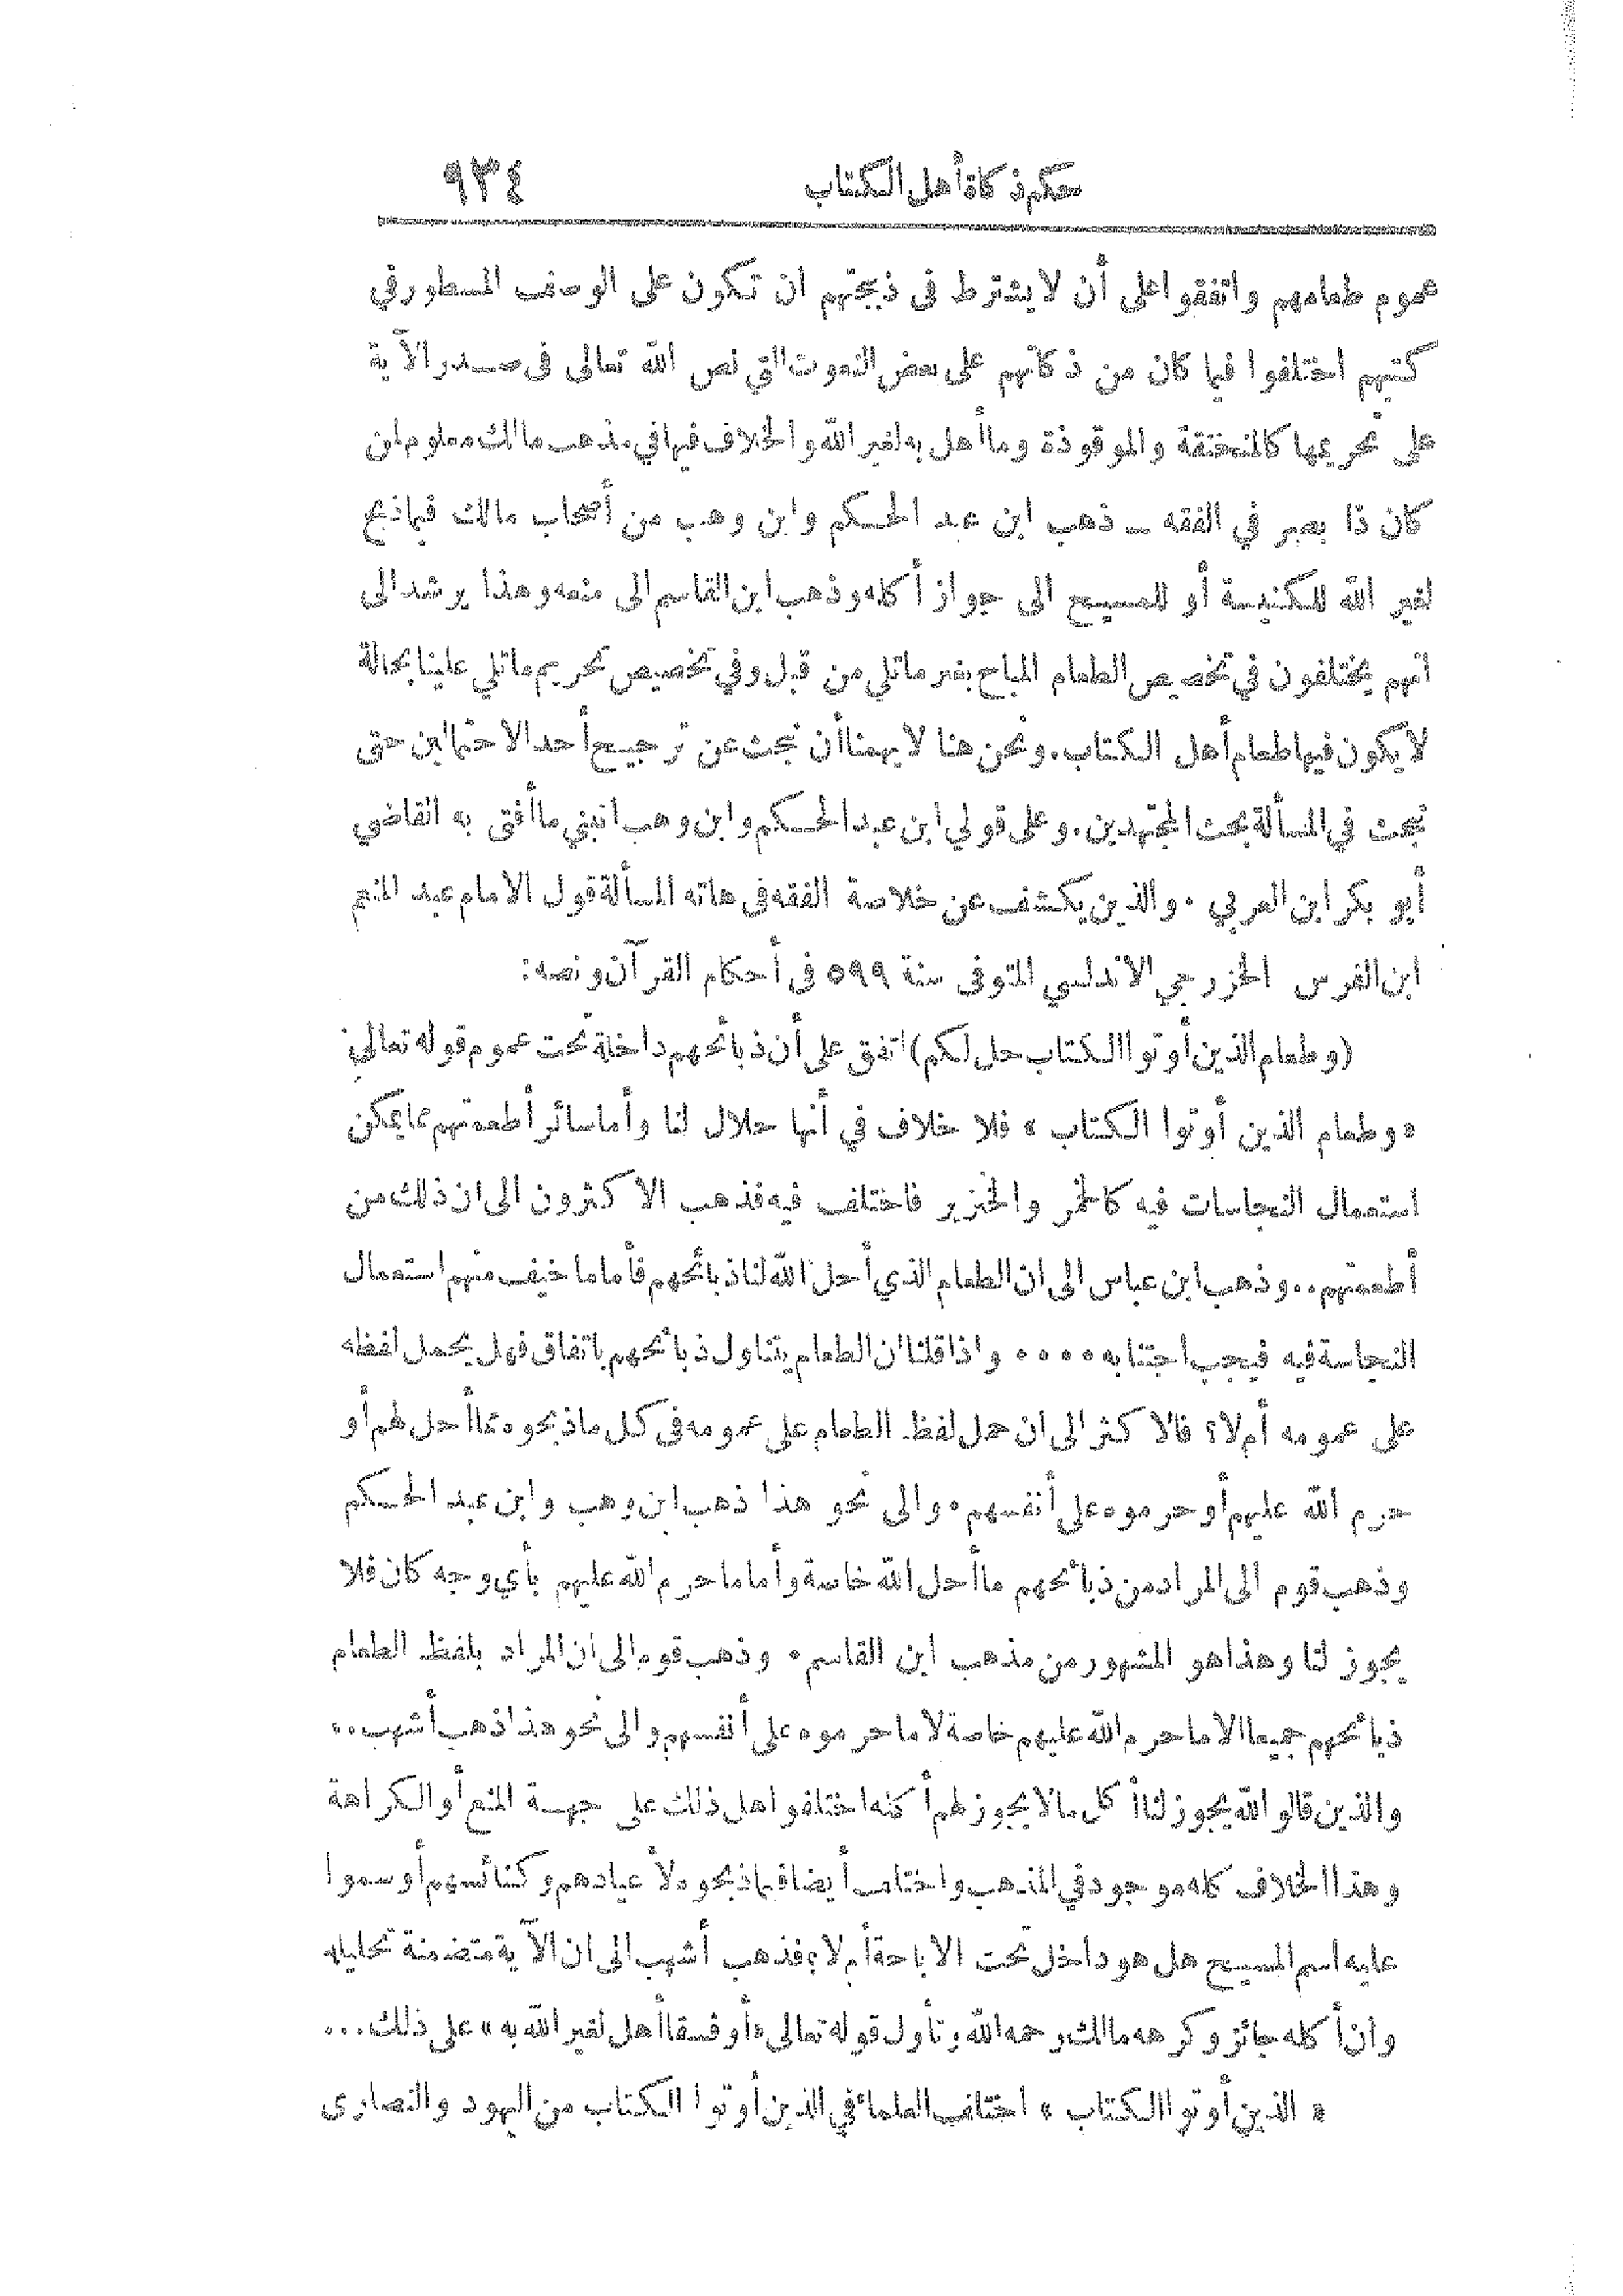 حكم ذكاة أهل الكتاب ٩٣٤
عموم طعامهم واتفقوا على أن لا يشترط في ذبيحتهم ان تكون على الوصف المسطور في
كتبهم اختلفوا فيما كان من ذكاتهم على بعض النعوت التي نص الله تعالى في صدر الآية
على تحريمها كالمنخنقة والموقوذة وما أهل به لغير الله والخلاف فيها في مذهب مالك معلوم لمن
كان ذا بصر في الفقه ــ ذهب ابن عبد الحكم وابن وهب من أصحاب مالك فيما ذبح
لغير الله للكنيسة أو للمسيح الى جواز أكله وذهب ابن القاسم الى منعه وهذا يرشد الى
انهم يختلفون في تخصيص الطعام المباح بغير ما تلي من قبل وفي تخصيص تحريم ما تلي علينا بحالة
لا يكون فيها طعام أهل الكتاب . ونحن هنا لا يهمنا أن نبحث عن ترجيح أحد الاحتمالين حتى
نبحث في المسألة بحث المجتهدين . وعلى قولي ابن عبد الحكم وابن وهب انبنى ما أفتى به القاضي
أبو بكر ابن العربي . والذين يكشف عن خلاصة الفقه في هاته المسألة قول الامام عبد المنعم
ابن الفرس الخزرجي الاندلسي المتوفى سنة ٥٩٩ في أحكام القرآن ونصه :
(وطعام الذين أوتوا الكتاب حل لكم) اتفق على أن ذبائحهم داخلة تحت عموم قوله تعالى
« وطعام الذين أوتوا الكتاب » فلا خلاف في أنها حلال لنا وأما سائر أطعمتهم مما يمكن
استعمال النجاسات فيه كالخمر والخنزير فاختلف فيه فذهب الاكثرون الى ان ذلك من
أطعمتهم .. وذهب ابن عباس الى ان الطعام الذي أحل الله لنا ذبائحهم فأما ما خيف منهم استعمال
النجاسة فيه فيجب اجتنابه .... واذا قلنا ان الطعام يتناول ذبائحهم باتفاق فهل يحمل لفظه
على عمومه أم لا ؟ فالاكثر الى ان حمل لفظ الطعام على عمومه في كل ما ذبحوه مما أحل لهم أو
حرم الله عليهم أو حرموه على أنفسهم . والى نحو هذا ذهب ابن وهب وابن عبد الحكم
وذهب قوم الى المراد من ذبائحهم ما أحل الله خاصة وأما ما حرم الله عليهم بأي وجه كان فلا
يجوز لنا وهذا هو المشهور من مذهب ابن القاسم . وذهب قوم الى ان المراد بلفظ الطعام
ذبائحهم جميعا الا ما حرم الله عليهم خاصة لا ما حرموه على أنفسهم والى نحو هذا ذهب أشهب ..
والذين قالو الله يجوز لنا أكل ما لا يجوز لهم أكله اختلفوا هل ذلك على جهة المنع أو الكراهة
وهذا الخلاف كله موجود في المذهب واختلف أيضا فيما ذبحوه لأعيادهم وكنائسهم أو سموا
عليه اسم المسيح هل هو داخل تحت الاباحة أم لا ؟ فذهب أشهب الى ان الآية متضمنة تحليله
وان أكله جائز وكرهه مالك رحمه الله وتأول قوله تعالى « أو فسقا أهل لغير الله به » على ذلك ...
« الذين أوتوا الكتاب » اختلف العلماء في الذين أوتوا الكتاب من اليهود والنصارى